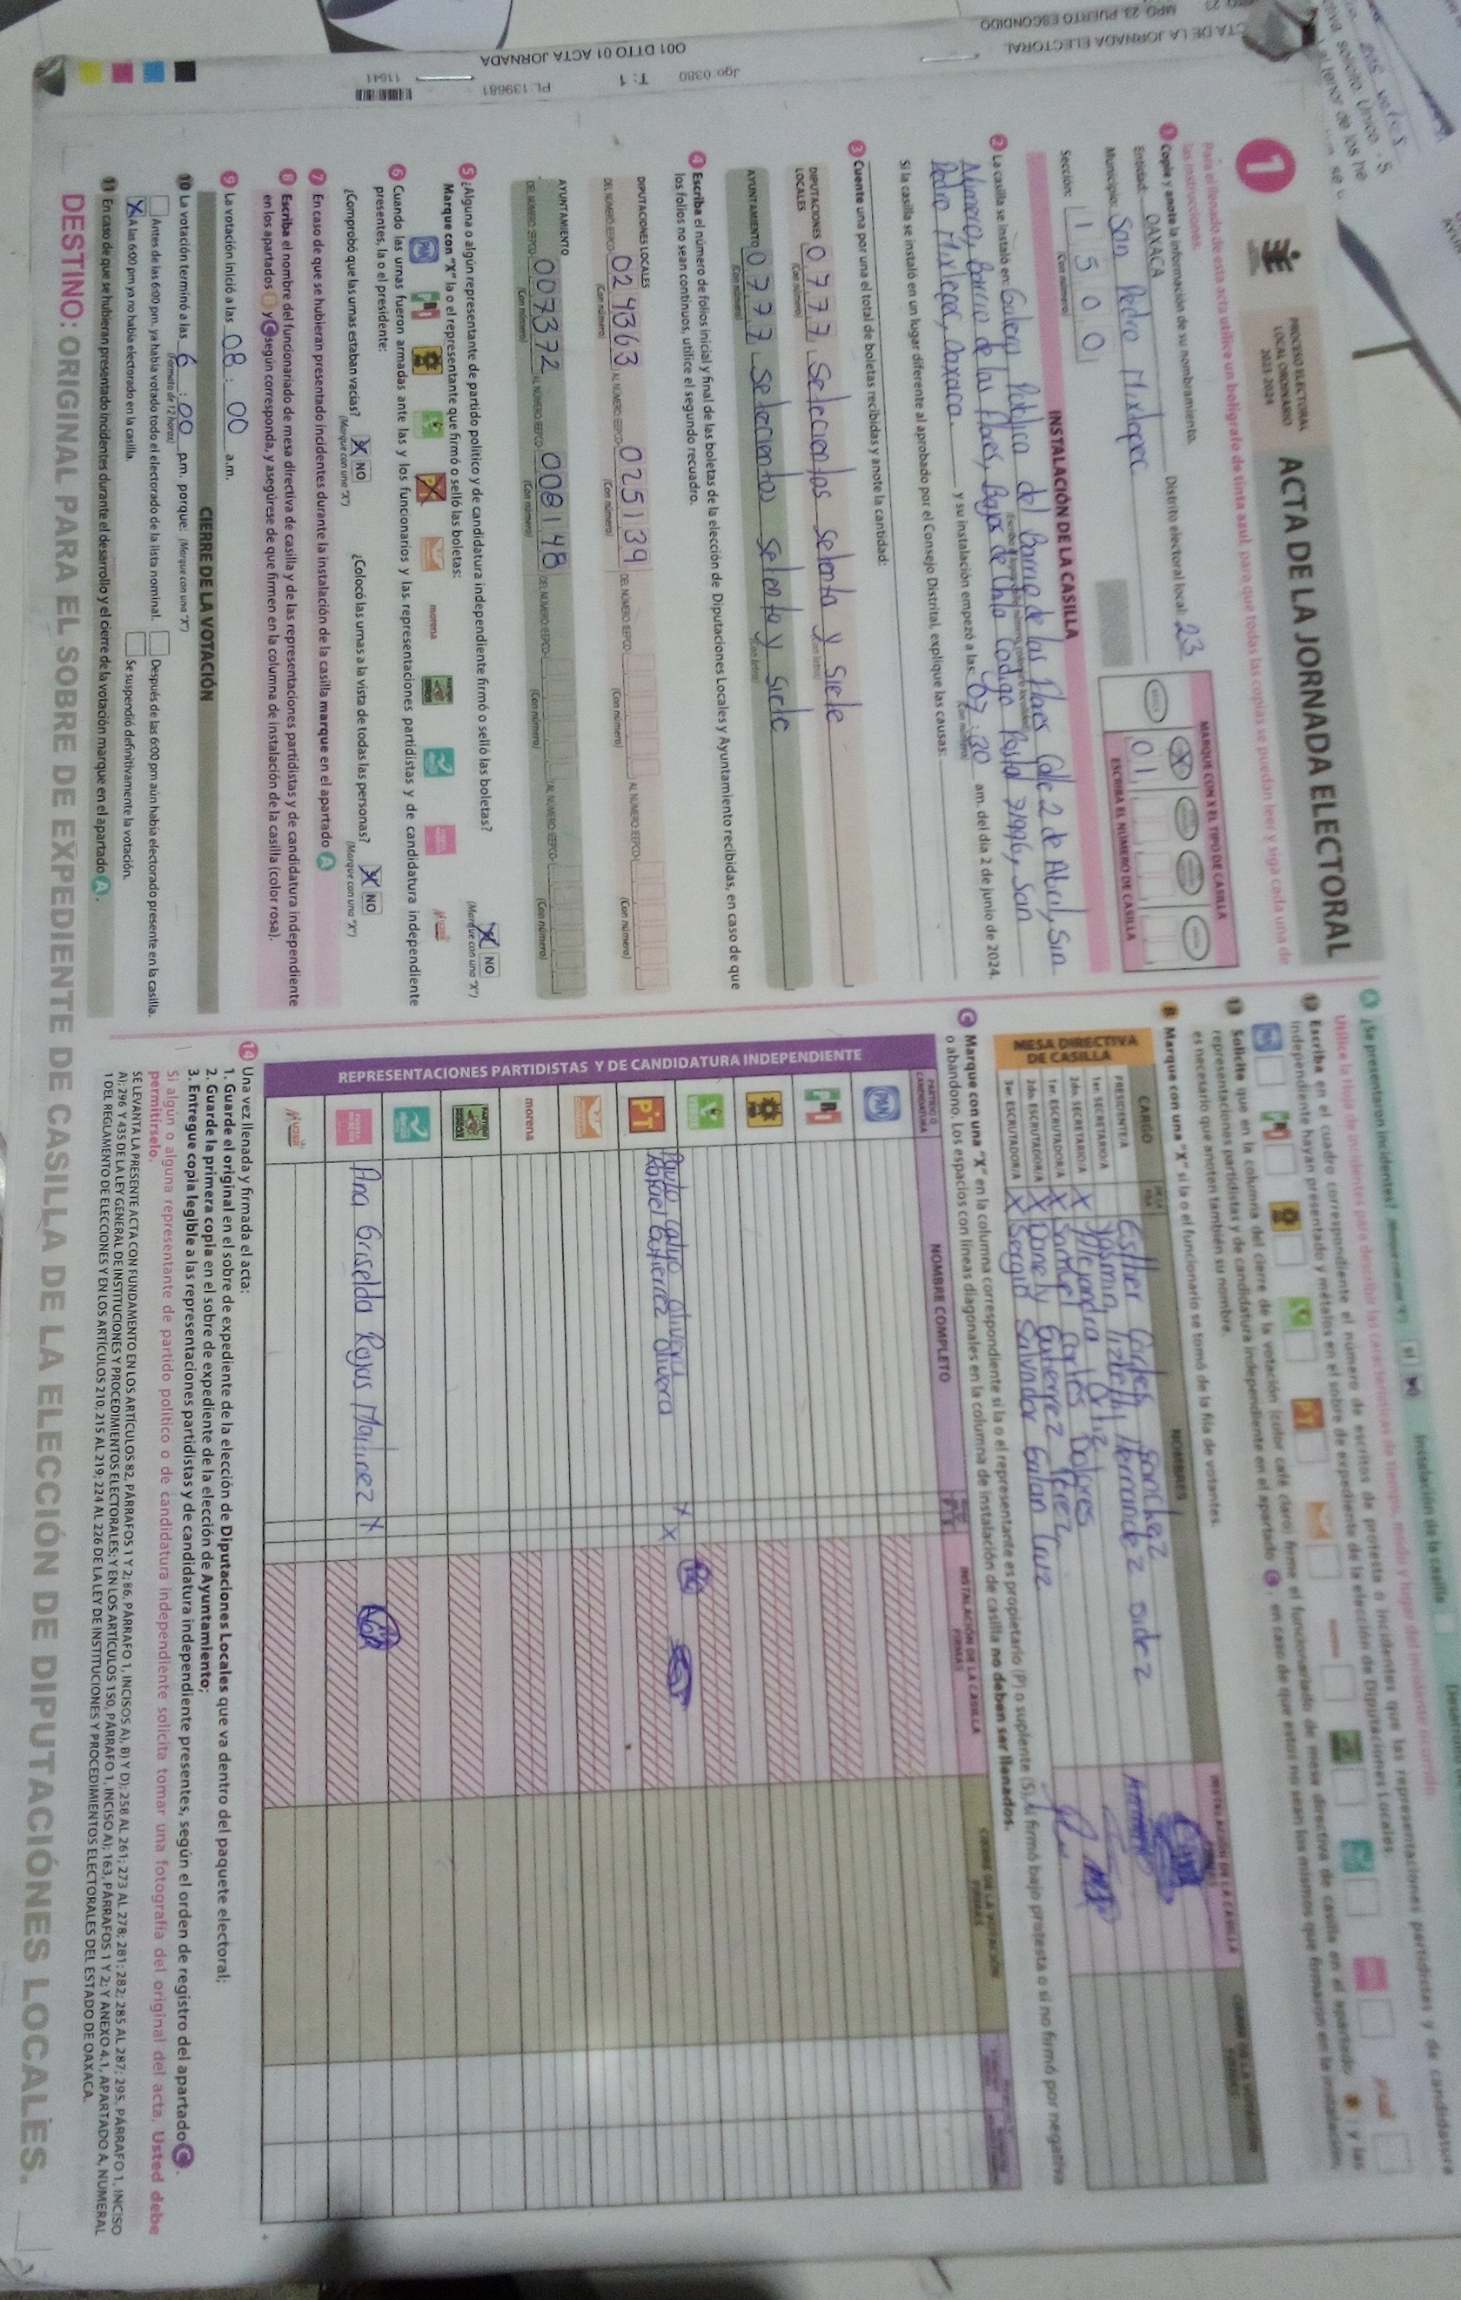 PROCESO ELECTORAL
LOCAL ORDINARIO
2023-2024
ACTA DE LA JORNADA ELECTORAL
Para el llenado de esta acta utilice un bolígrafo de tinta azul, para que todas las copias se puedan leer y siga cada una de
las instrucciones.
1 Copie y anote la información de su nombramiento.
Entidad: OAXACA Distrito electoral local: 23
Municipio: San Pedro Mixtepec
Sección: 1500
(Con número)
MARQUE CON X EL TIPO DE CASILLA
ESCRIBA EL NÚMERO DE CASILLA
01
INSTALACIÓN DE LA CASILLA
2 La casilla se instaló en: Galera Pública del Barrio de las Flores Calle 2 de Abril, Sin
Número, Barrio de las Flores, Bajos de Chila Código Postal 71996, San
Pedro Mixtepec, Oaxaca. y su instalación empezó a las 07:20 am. del día 2 de junio de 2024.
Si la casilla se instaló en un lugar diferente al aprobado por el Consejo Distrital, explique las causas:
3 Cuente una por una el total de boletas recibidas y anote la cantidad:
DIPUTACIONES LOCALES 0777 Setecientos setenta y siete
AYUNTAMIENTO 0777 setecientos setenta y siete
4 Escriba el número de folios inicial y final de las boletas de la elección de Diputaciones Locales y Ayuntamiento recibidas, en caso de que
los folios no sean continuos, utilice el segundo recuadro.
DIPUTACIONES LOCALES
024363 025139
AYUNTAMIENTO
007372 008148
5 ¿Alguna o algún representante de partido político y de candidatura independiente firmó o selló las boletas?
X NO
(Marque con una "X")
Marque con "X" la o el representante que firmó o selló las boletas:
PAN PRI PT morena
6 Cuando las urnas fueron armadas ante las y los funcionarios y las representaciones partidistas y de candidatura independiente
presentes, la o el presidente:
¿Comprobó que las urnas estaban vacías? X NO ¿Colocó las urnas a la vista de todas las personas? X NO
(Marque con una "X") (Marque con una "X")
7 En caso de que se hubieran presentado incidentes durante la instalación de la casilla marque en el apartado A
8 Escriba el nombre del funcionariado de mesa directiva de casilla y de las representaciones partidistas y de candidatura independiente
en los apartados B y C según corresponda, y asegúrese de que firmen en la columna de instalación de la casilla (color rosa).
9 La votación inició a las 08:00 a.m.
CIERRE DE LA VOTACIÓN
10 La votación terminó a las 6:00 p.m. porque: (Marque con una "X")
(Formato de 12 horas)
Antes de las 6:00 pm. ya había votado todo el electorado de la lista nominal.
Después de las 6:00 pm aún había electorado presente en la casilla.
X A las 6:00 pm ya no había electorado en la casilla.
Se suspendió definitivamente la votación.
11 En caso de que se hubieran presentado incidentes durante el desarrollo y el cierre de la votación marque en el apartado A.
A ¿Se presentaron incidentes?
Instalación de la casilla
12 Escriba en el cuadro correspondiente el número de escritos de protesta o incidentes que las representaciones partidistas y de candidatura
independiente hayan presentado y métalos en el sobre de expediente de la elección de Diputaciones Locales.
13 Solicite que en la columna del cierre de la votación (color café claro) firme el funcionariado de mesa directiva de casilla en el apartado B y las
representaciones partidistas y de candidatura independiente en el apartado C, en caso de que estos no sean los mismos que firmaron en la instalación,
es necesario que anoten también su nombre.
B Marque con una "X" si la o el funcionario se tomó de la fila de votantes.
MESA DIRECTIVA DE CASILLA
CARGO NOMBRES
PRESIDENTE/A Esther Cortés Sanchez
1er. SECRETARIO/A Yasmin Lizbeth Hernandez Diaz
2do. SECRETARIO/A X Alejandra Ortiz Bolores
1er. ESCRUTADOR/A X Samuel Cortes Perez
2do. ESCRUTADOR/A X Danely Gutierrez
3er. ESCRUTADOR/A X Sergio Salvador Galan Cruz
C Marque con una "X" en la columna correspondiente si la o el representante es propietario (P) o suplente (S), si firmó bajo protesta o si no firmó por negativa
o abandono. Los espacios con líneas diagonales en la columna de instalación de casilla no deben ser llenados.
REPRESENTACIONES PARTIDISTAS Y DE CANDIDATURA INDEPENDIENTE
NOMBRE COMPLETO
INSTALACIÓN DE LA CASILLA
FIRMAS
CIERRE DE LA VOTACIÓN
FIRMAS
PAN
PRI
VERDE
Paula Calyo Olivera X
PT Rafael Gutierrez Olivera X
morena
Ana Griselda Rojas Martinez X
14 Una vez llenada y firmada el acta:
1. Guarde el original en el sobre de expediente de la elección de Diputaciones Locales que va dentro del paquete electoral;
2. Guarde la primera copia en el sobre de expediente de la elección de Ayuntamiento;
3. Entregue copia legible a las representaciones partidistas y de candidatura independiente presentes, según el orden de registro del apartado C.
Si algún o alguna representante de partido político o de candidatura independiente solicita tomar una fotografía del original del acta. Usted debe
permitírselo.
SE LEVANTA LA PRESENTE ACTA CON FUNDAMENTO EN LOS ARTÍCULOS 82, PÁRRAFOS 1 Y 2; 86, PÁRRAFO 1, INCISOS A), B) Y D); 258 AL 261; 273 AL 278; 281; 282; 285 AL 287; 295, PÁRRAFO 1, INCISO
A); 296 Y 435 DE LA LEY GENERAL DE INSTITUCIONES Y PROCEDIMIENTOS ELECTORALES; Y EN LOS ARTÍCULOS 150, PÁRRAFO 1, INCISO A); 163, PÁRRAFOS 1 Y 2; Y ANEXO 4.1, APARTADO A, NUMERAL
1 DEL REGLAMENTO DE ELECCIONES Y EN LOS ARTÍCULOS 210; 215 AL 219; 224 AL 226 DE LA LEY DE INSTITUCIONES Y PROCEDIMIENTOS ELECTORALES DEL ESTADO DE OAXACA.
DESTINO: ORIGINAL PARA EL SOBRE DE EXPEDIENTE DE CASILLA DE LA ELECCIÓN DE DIPUTACIÓNES LOCALES.
CTA DE LA JORNADA ELECTORAL
MPO 23 PUERTO ESCONDIDO
001 DTTO 01 ACTA JORNADA
Jgo: 0380
T: 1
PL 139681
11641